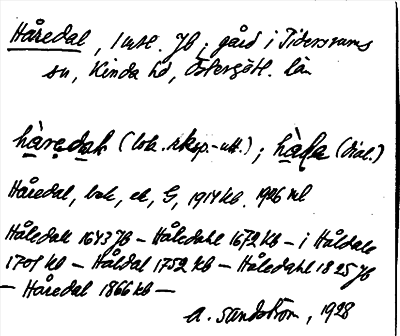 Håredal, 1 mtl. Jb; gård i Tidersrums
sn, Kinda hd, Östergötl. län
hàredal (lok. riksp.-utt.); (dial.)
Håredal, bok, ek, G, 1914 kb. 1926 ml
Håledall 1643 Jb – Håledahl 1672 kb – i Håldale
1701 kb – Håldal 1752 kb – Håledahl 1825 Jb
– Håredal 1866 kb –
A. Sandström, 1928